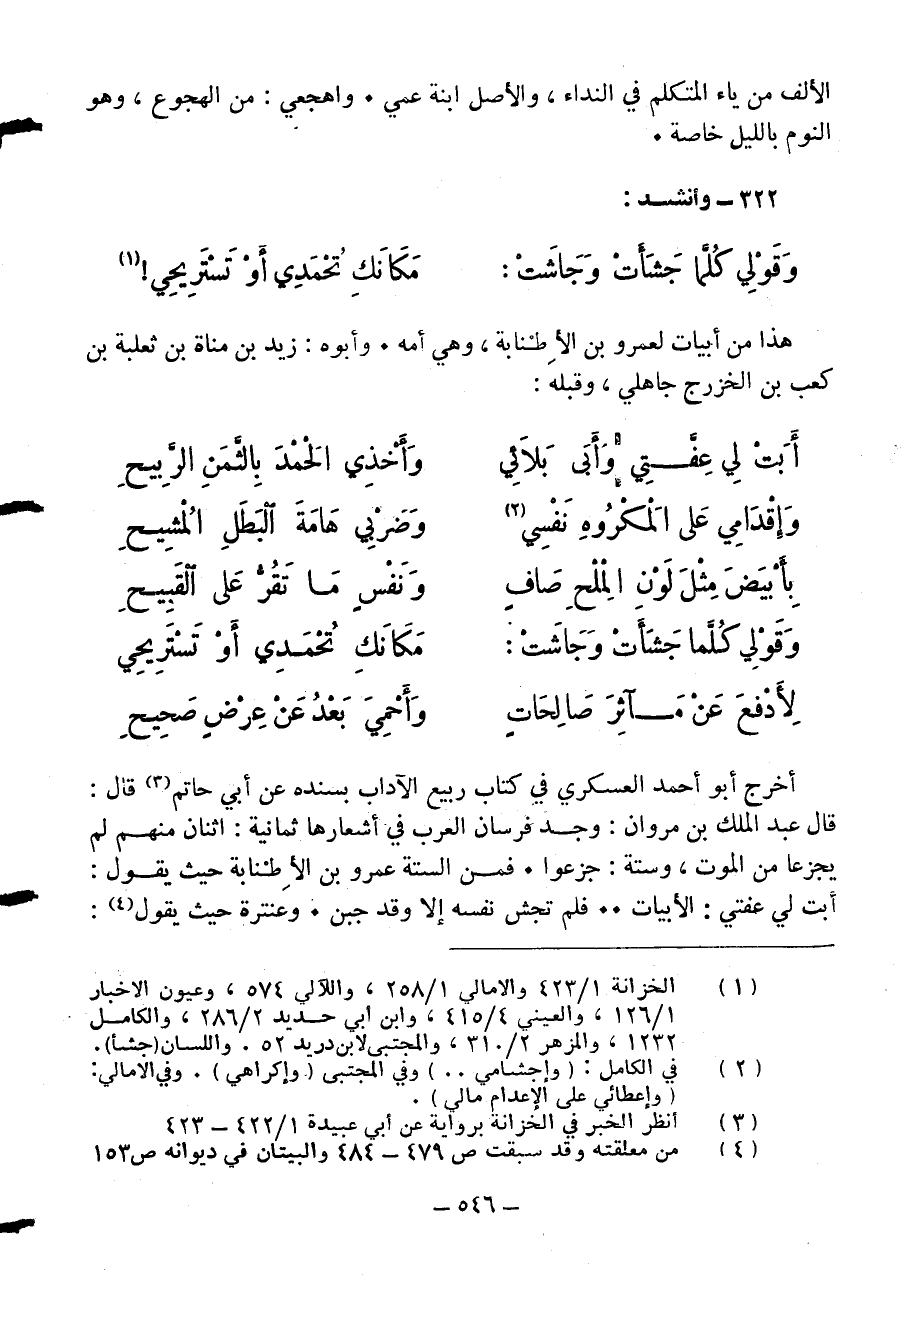 الألف من ياء المتكلم في النداء ، والأصل ابنة عمي . واهجعي : من الهجوع ، وهو
النوم بالليل خاصة .
٣٢٢ ــ وأنشــد :
وَقَوْلِي كُلَّمَا جَشَأَتْ وَجَاشَتْ : مَكَانَكِ تُحْمَدِي أَوْ تَسْتَرِيحِي!(١)
هذا من أبيات لعمرو بن الأطنابة ، وهي أمه . وأبوه : زيد بن مناة بن ثعلبة بن
كعب بن الخزرج جاهلي ، وقبله :
أَبَتْ لِي عِفَّــتِي وَأَبَى بَلاَئِي وَأَخْذِي الْحَمْدَ بِالثَّمَنِ الرَّبِيحِ
وَإِقْدَامِي عَلَى الْمَكْرُوهِ نَفْسِي(٢) وَضَرْبِي هَامَةَ الْبَطَلِ الْمُشِيـحِ
بِأَبْيَضَ مِثْلَ لَوْنِ الْمِلْحِ صَافٍ وَنَفْسٍ مَـا تَقُرُّ عَلَى الْقَبِيـحِ
وَقَوْلِي كُلَّمَا جَشَأَتْ وَجَاشَتْ : مَكَانَكِ تُحْمَـدِي أَوْ تَسْتَرِيحِي
لِأَدْفَعَ عَنْ مَــآثِرَ صَالِحَاتٍ وَأَحْمِيَ بَعْدُ عَنْ عِرْضٍ صَحِيحِ
أخرج أبو أحمد العسكري في كتاب ربيع الآداب بسنده عن أبي حاتم(٣) قال :
قال عبد الملك بن مروان : وجـد فرسان العرب في أشعارها ثمانية : اثنان منهـم لم
يجزعا من الموت ، وستة : جزعوا . فمـن الستة عمرو بن الأطنابة حيث يقـول :
أبت لي عفتي : الأبيات .. فلم تجش نفسه إلا وقد جبن . وعنترة حيث يقول(٤) :
(١) الخزانة ٤٢٣/١ والامالي ٢٥٨/١ ، واللآلي ٥٧٤ ، وعيون الاخبار
١٢٦/١ ، والعيني ٤١٥/٤ ، وابن ابي حـديد ٢٨٦/٢ ، والكامـل
١٢٣٢ ، والمزهر ٣١٠/٢ ، والمجتبى لابن دريد ٥٢ . واللسان (جشأ).
(٢) في الكامل : ( وإجشامي .. ) وفي المجتبى ( وإكراهي ) . وفي الامالي:
( وإعطائي على الإعدام مالي ) .
(٣) أنظر الخبر في الخزانة برواية عن أبي عبيدة ٤٢٢/١ – ٤٢٣
(٤) من معلقته وقد سبقت ص ٤٧٩ – ٤٨٤ والبيتان في ديوانه ص١٥٣
– ٥٤٦ –